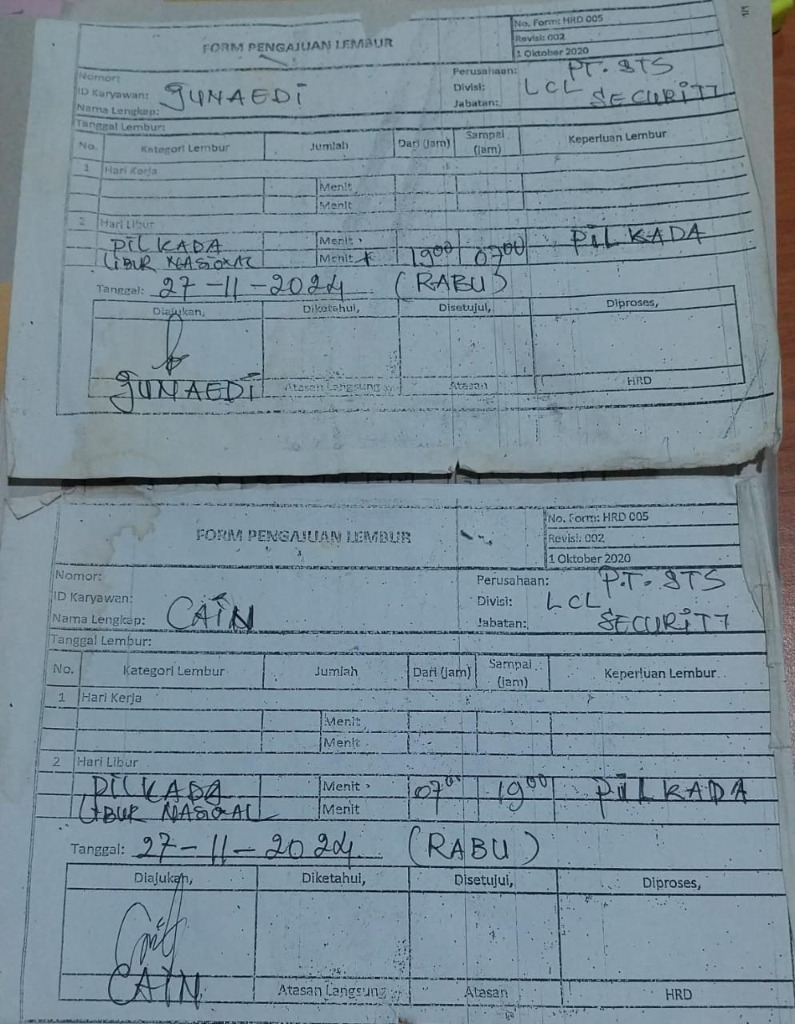 FORM PENGAJUAN LEMBUR
No. Form: HRD 005
Revisi: 002
1 Oktober 2020
Nomor:
Perusahaan: PT. STS
ID Karyawan:
Divisi: LCL
Nama Lengkap: JUNAEDI
Jabatan: SECURITY
Tanggal Lembur:
No. Kategori Lembur Jumlah Dari (Jam) Sampai (Jam) Keperluan Lembur
1 Hari Kerja
Menit
Menit
2 Hari Libur
PILKADA Menit 19⁰⁰ 07⁰⁰ PILKADA
LIBUR NASIONAL Menit
Tanggal: 27-11-2024 (RABU)
Diajukan, Diketahui, Disetujui, Diproses,
JUNAEDI Atasan Langsung Atasan HRD
FORM PENGAJUAN LEMBUR
No. Form: HRD 005
Revisi: 002
1 Oktober 2020
Nomor:
Perusahaan: P.T. STS
ID Karyawan:
Divisi: LCL
Nama Lengkap: CAIN
Jabatan: SECURITY
Tanggal Lembur:
No. Kategori Lembur Jumlah Dari (Jam) Sampai (Jam) Keperluan Lembur
1 Hari Kerja
Menit
Menit
2 Hari Libur
PILKADA Menit 07⁰⁰ 19⁰⁰ PILKADA
LIBUR NASIONAL Menit
Tanggal: 27-11-2024 (RABU)
Diajukan, Diketahui, Disetujui, Diproses,
CAIN Atasan Langsung Atasan HRD